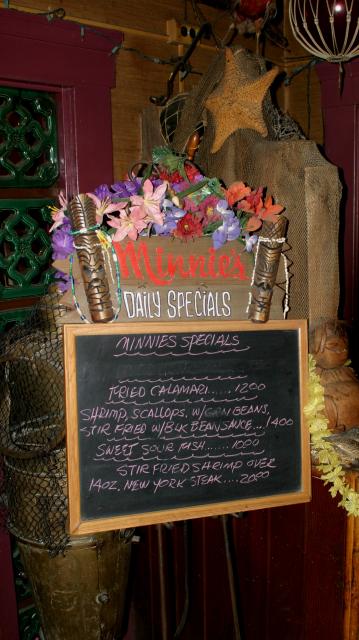 Minnie's
DAILY SPECIALS
MINNIES SPECIALS
FRIED CALAMARI.....1200
SHRIMP, SCALLOPS, W/GREEN BEANS,
STIR FRIED W/BLK BEAN SAUCE...1400
SWEET SOUR FISH......1000
STIR FRIED SHRIMP OVER
14OZ. NEW YORK STEAK....2000